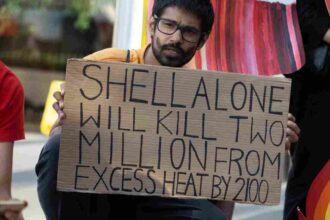 SHELL ALONE
WILL KILL TWO
MILLION FROM
EXCESS HEAT BY 2100